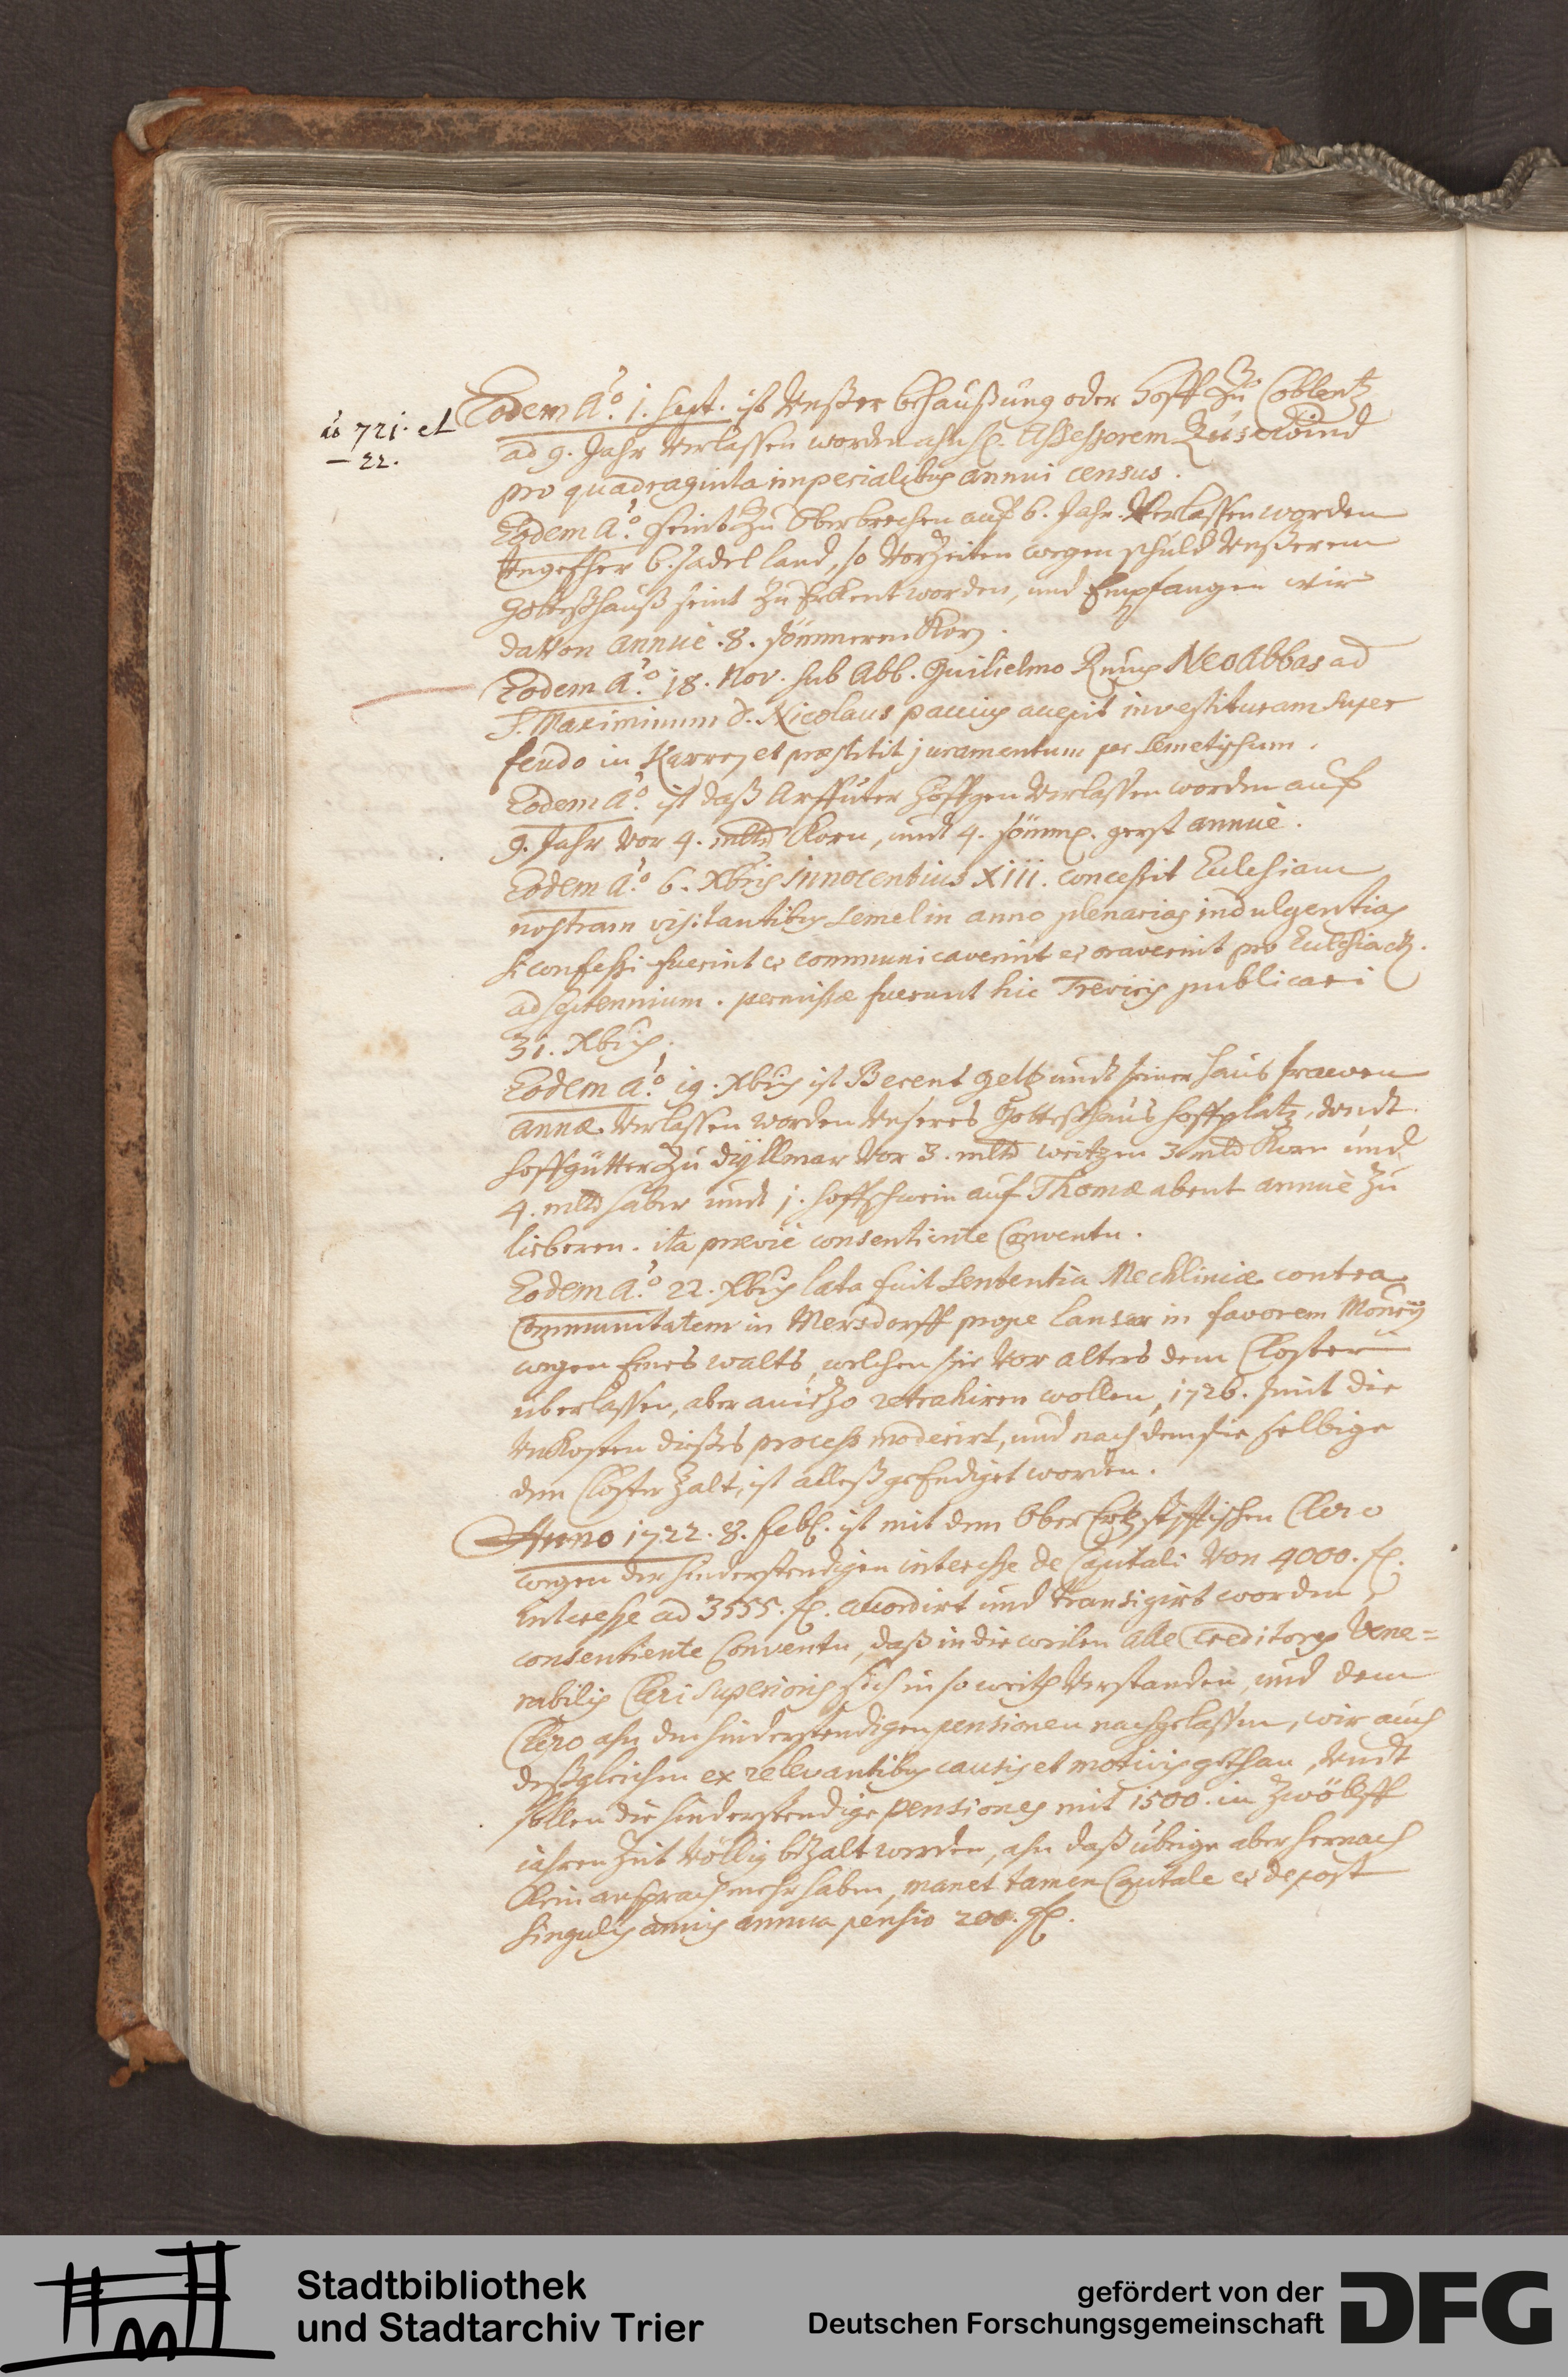 ao 721. et
— 22.
Eodem Ao. 1. Sept. ist Unßer behaußung oder Hoff Zu Coblentz
ad 9. Jahr Verlassen worden ahn H. Assessorem
pro quadraginta imperialibus annui census.
Eodem Ao. seint Zu Oberbrechen auf 6. Jahr Verlassen worden
Ungefher 6. sadel land, so VorZeiten wegen schuld Unßerem
Gotteßhauß seint Zu Erkent worden, und Empfangen wir
daVon annuè 8. sömmeren Korn.
Eodem Ao. 18. Nov. sub Abb. Guilielmo Neo Abbas ad
S. Maximinum D. Nicolaus paccius accepit investituram super
feudo in Kerrey et præstitit juramentum per semetipsum.
Eodem Ao. ist daß Höffgen Verlassen worden auf
9. Jahr Vor 4. mltd Korn, und 4. sömmer gerst annuè.
Eodem Ao. 6. Xbris Innocentius XIII. concessit Ecclesiam
nostram visitantibus semel in anno plenarias indulgentias
si confessi fuerint et communicaverint et oraverint pro Ecclesia etc.
ad septennium. permissæ fuerunt hic Treviris publicari
31. Xbris.
Eodem Ao. 19. Xbris ist Berent geltz undt seiner haus frawen
annæ Verlassen worden Unseres Gotteßhaus hoffplatz, Undt
hoffgütter Zu Diyllmar Vor 3. mltd weitzen 3 mltd Korn und
4. mltd haber undt 1. hoffschwein auf Thomæ abent annuè Zu
lieberen. ita præviè consentiente Conventu.
Eodem Ao. 22. Xbris lata fuit sententia Mechliniæ contra
Communitatem in Mersdorff prope lanser in favorem Monrij
wegen Eines walts, welchen sie Vor alters dem Closter
uberlassen, aber aniezo retrahiren wollen, 1726. seint die
Unkosten dießes process moderirt, und nach dem sie selbige
dem Closter Zalt, ist alleß geEndiget worden.
Anno 1722. 8. feb. ist mit dem Ober Ertzstifftischen Clero
wegen der hinderstendigen interesse de Capitali Von 4000. fl.
Interesse ad 3555. fl. accordirt und transigirt worden
consentiente Conventu, daß in die weilen alle Creditores Vene=
rabilis Cleri superioris sich in so weith Verstanden, und dem
Clero ahn den hinderstendigen pensionen nachgelassen, wir auch
deßgleichen ex relevantibus causis et motivis gethan, Undt
sollen die hinderstendige pensiones mit 1500. in Zwölff
iahren Zeit Völlig bezalt werden, ahn daß übrige aber hernach
Kein ansprach mehr haben, manet tamen Capitale et depost
singulis annis annua pensio 200. fl.
Stadtbibliothek
und Stadtarchiv Trier
gefördert von der
Deutschen Forschungsgemeinschaft
DFG